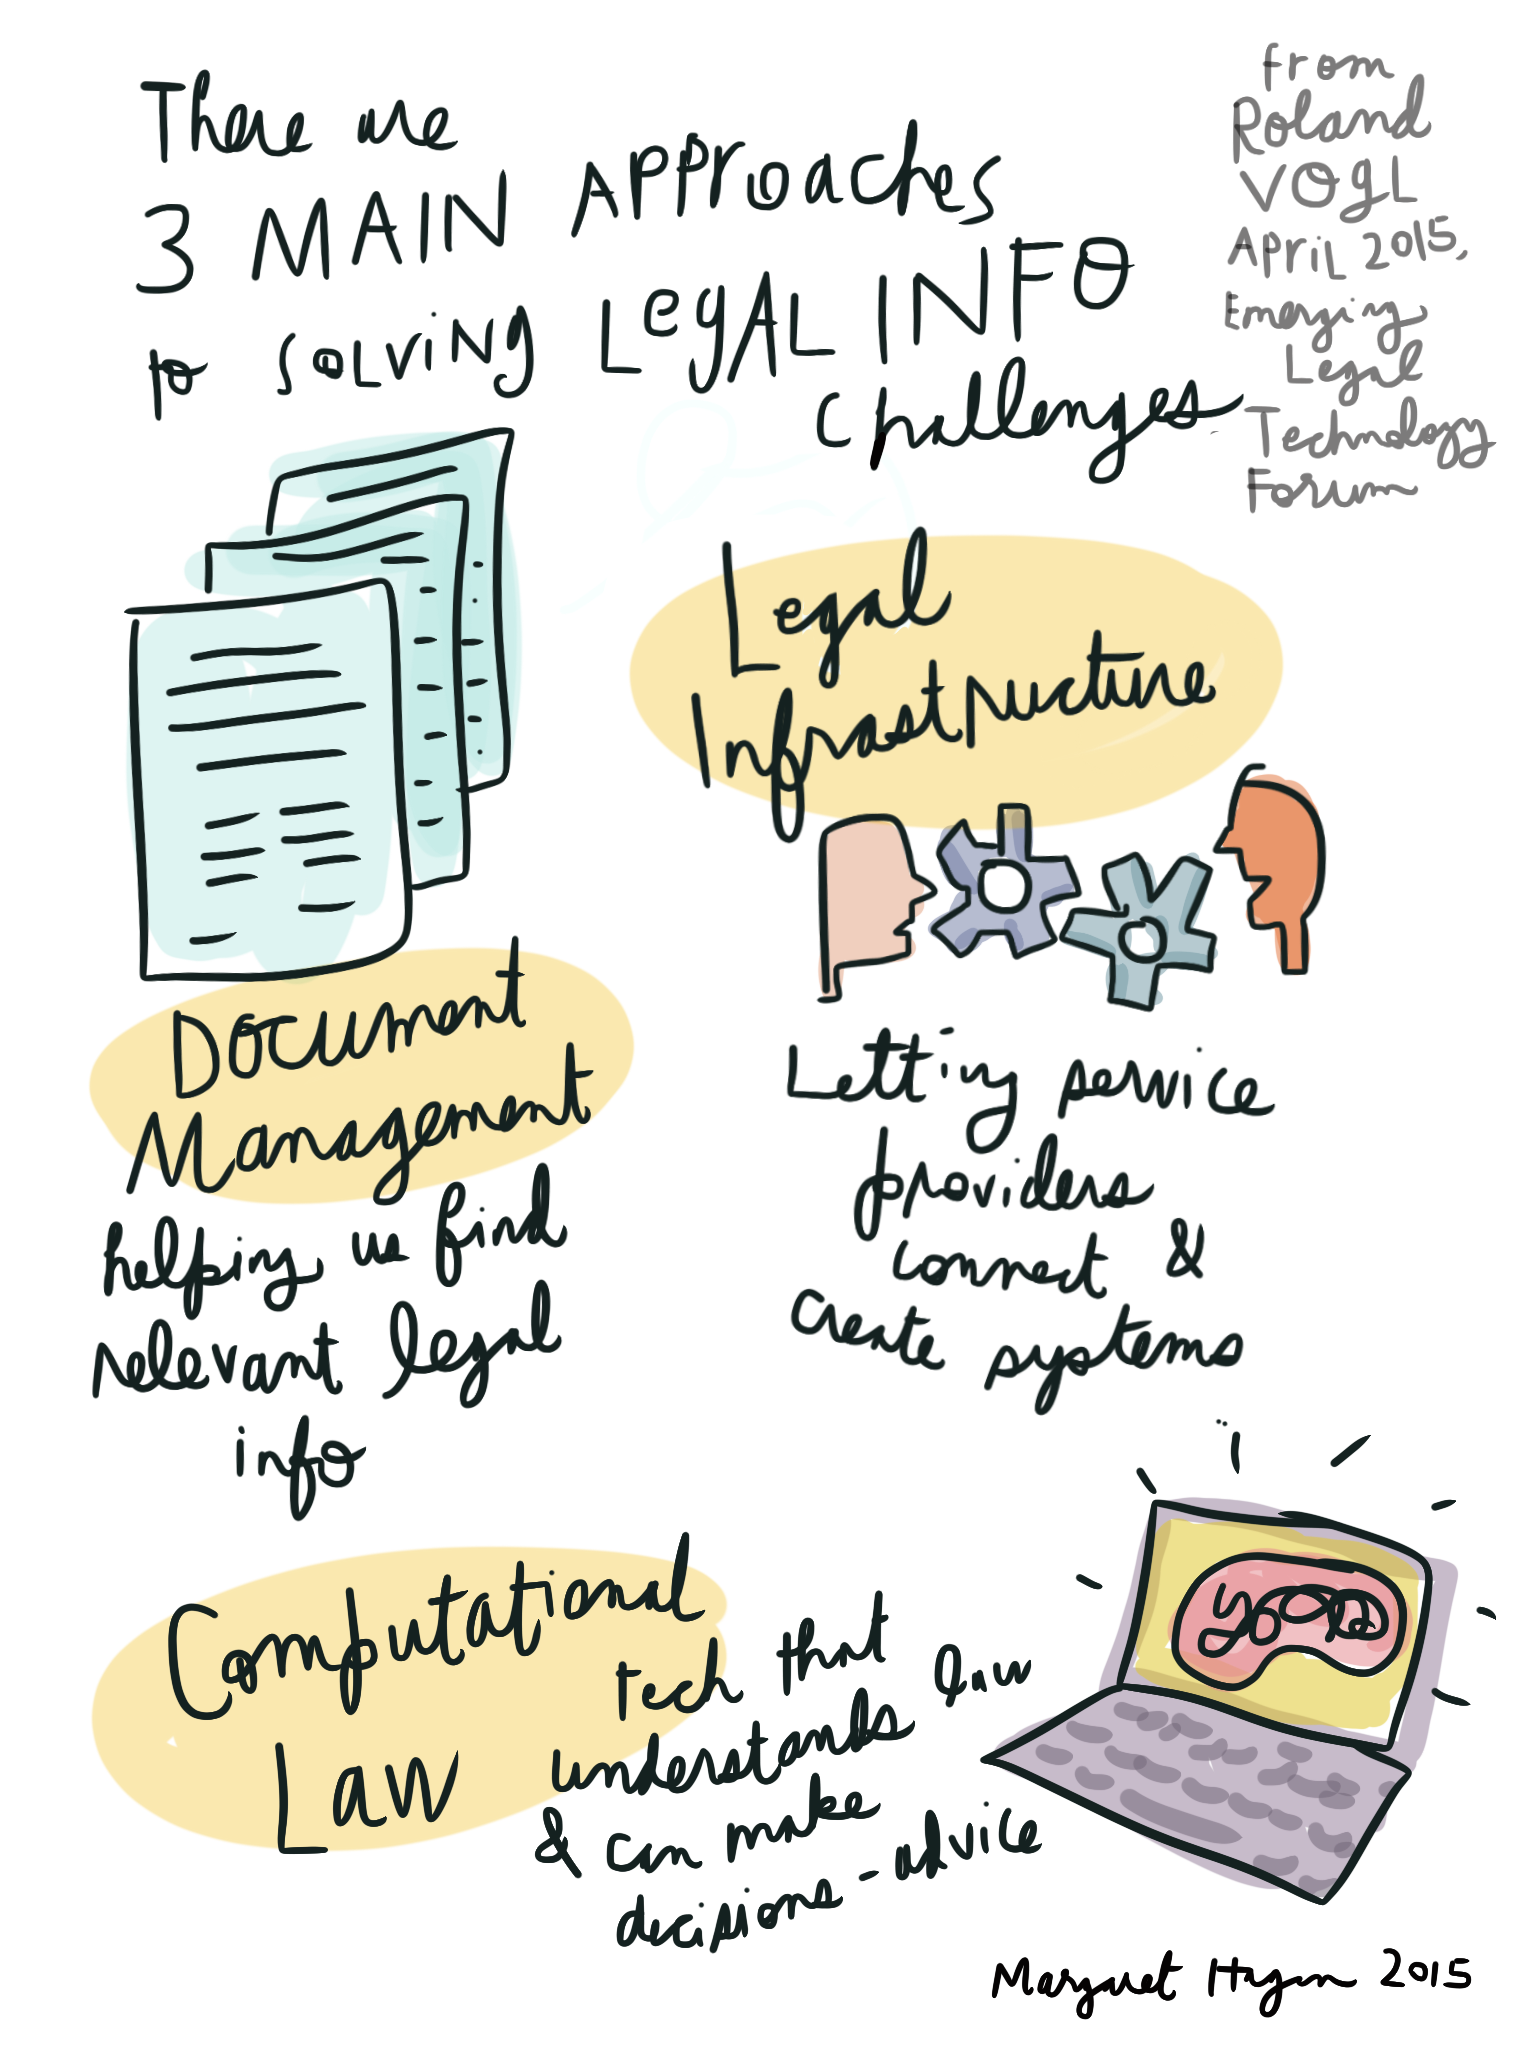 There are
3 MAIN APPROACHES
to SOLVING LEGAL INFO
challenges
from
Roland
VOGL
April 2015,
Emerging
Legal
Technology
Forum
Legal
Infrastructure
Document
Management
helping us find
relevant legal
info
Letting service
providers
connect &
create systems
Computational
Law
tech that
understands law
& can make
decisions - advice
Margaret Hagan 2015